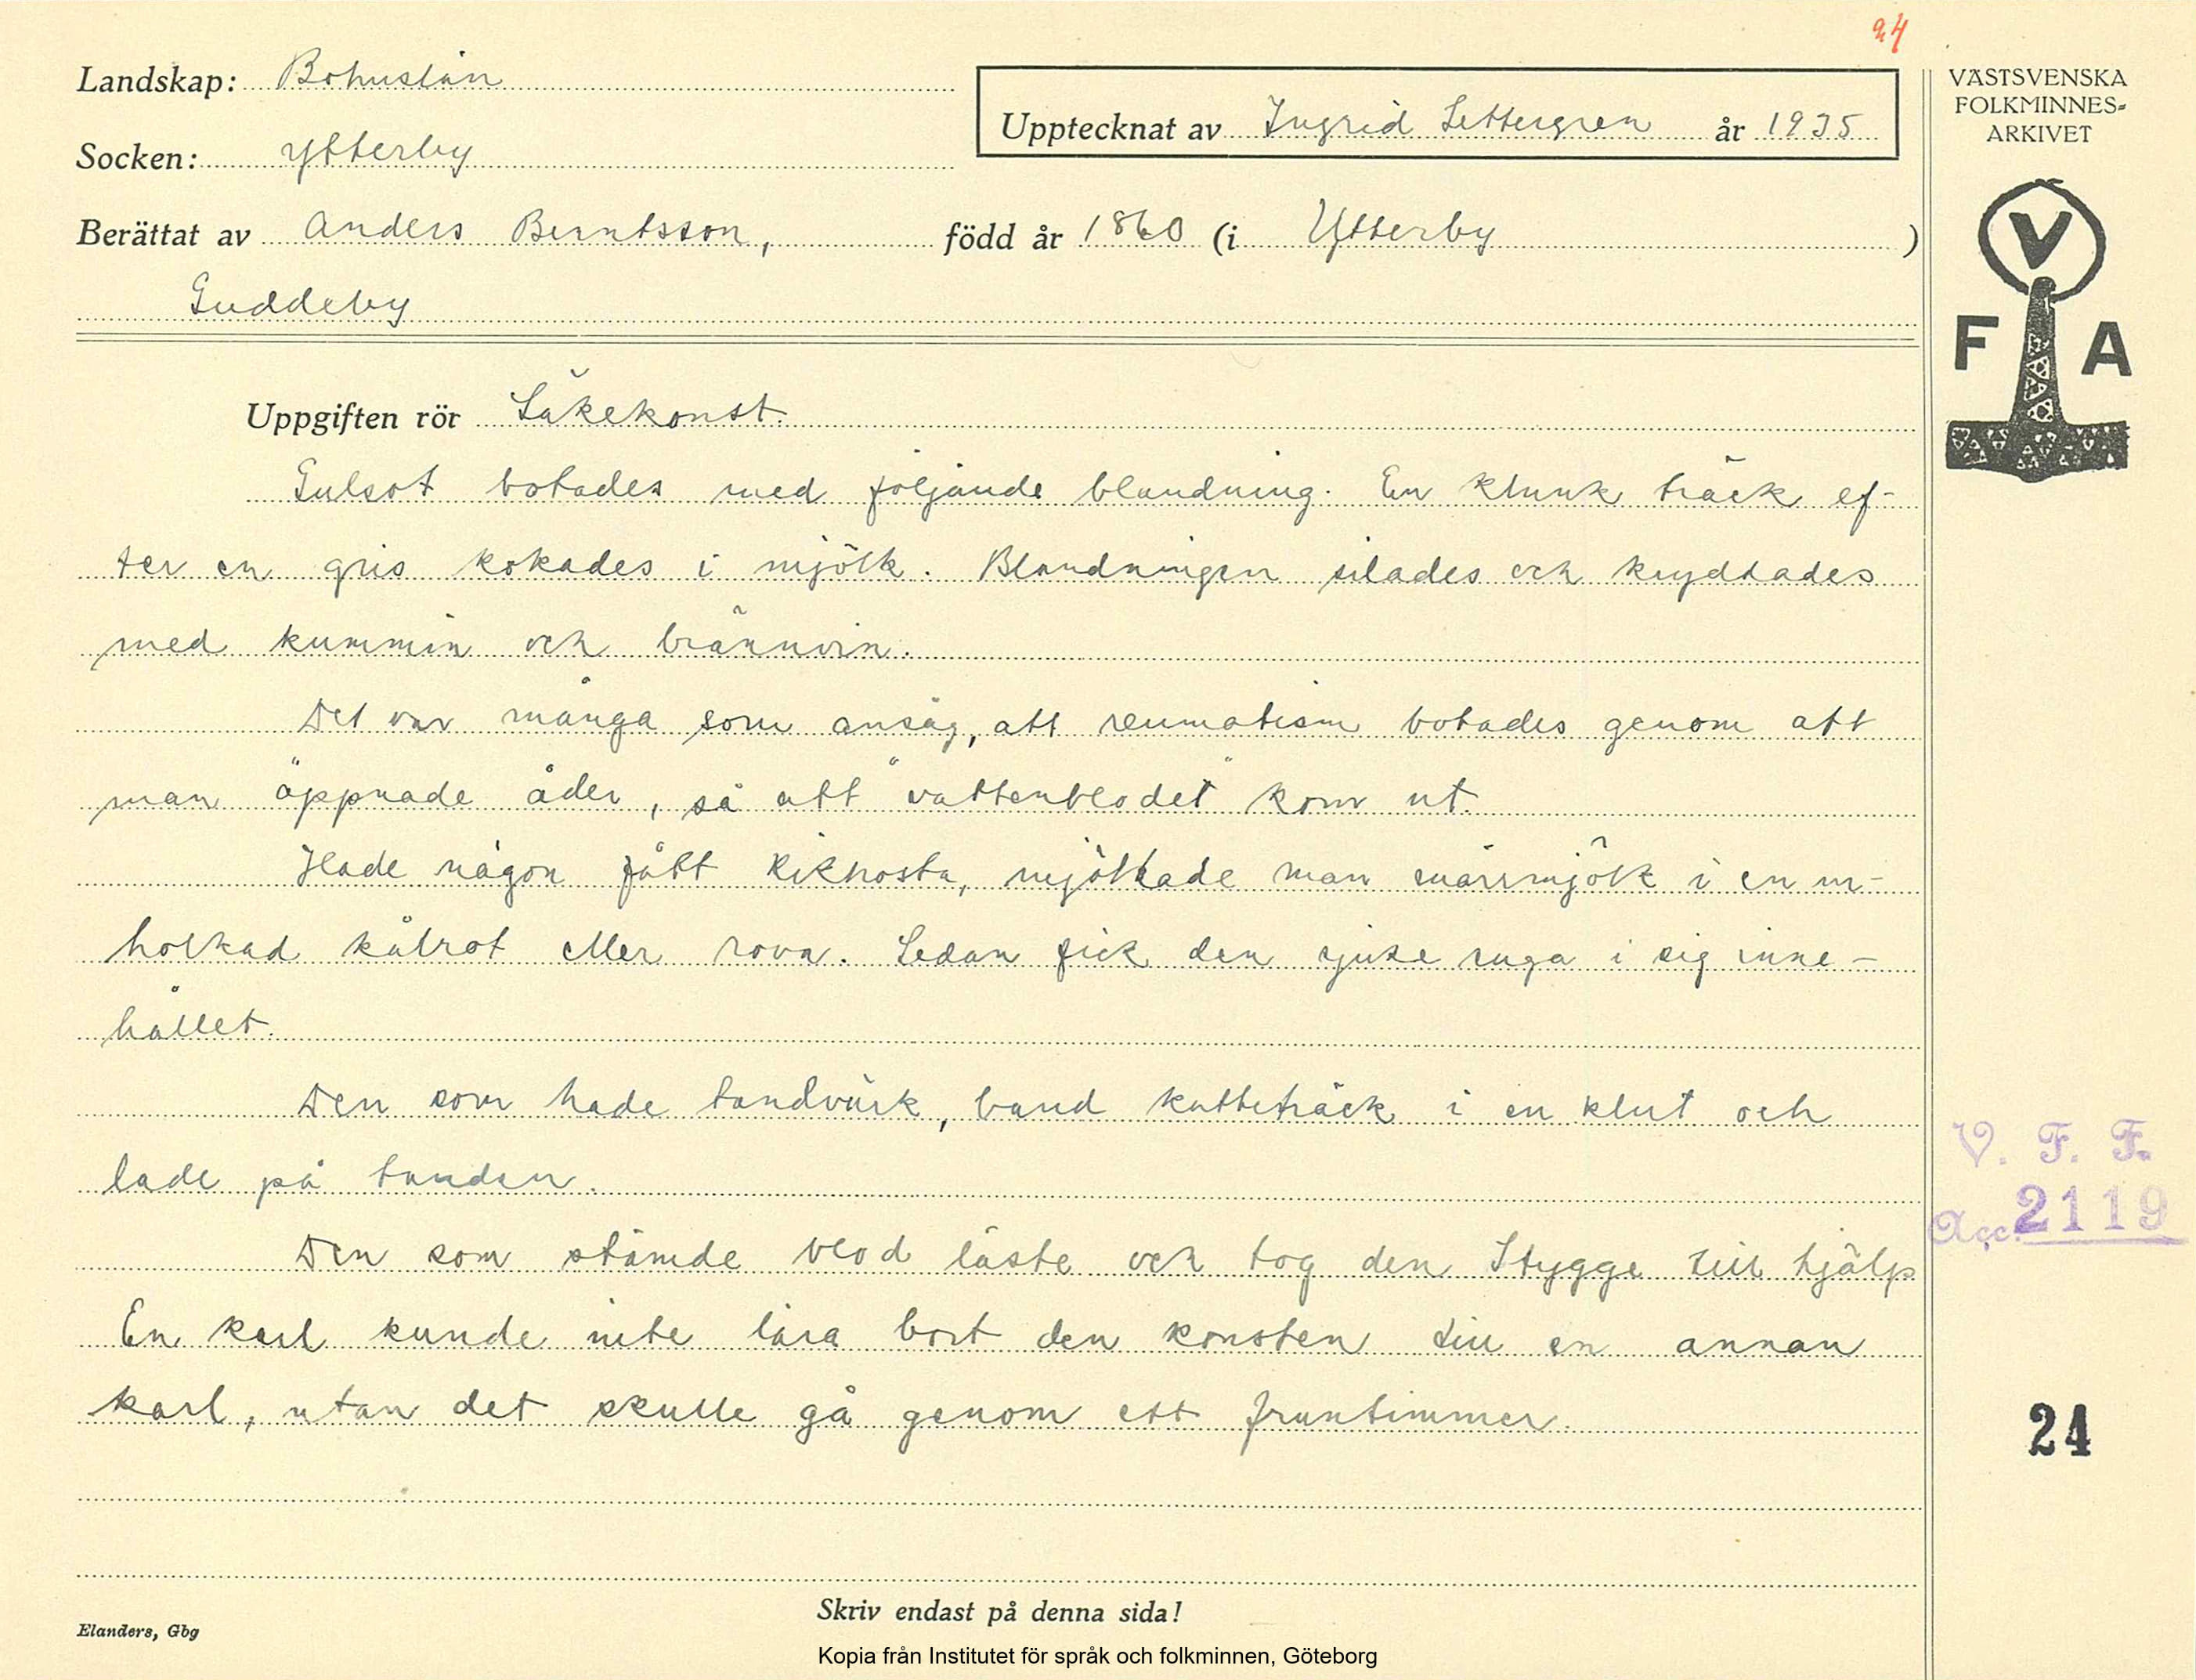 24
Landskap: Bohuslän
Socken: Ytterby
Upptecknat av Ingrid Settergren år 1935
Berättat av Anders Berntsson, född år 1860 (i Ytterby )
Guddeby
VÄSTSVENSKA
FOLKMINNES-
ARKIVET
V
F A
Uppgiften rör Läkekonst.
Gulsot botades med följande blandning. En klunk träck ef-
ter en gris kokades i mjölk. Blandningen silades och kryddades
med kummin och brännvin.
Det var många som ansåg, att reumatism botades genom att
man öppnade åder, så att "vattenblodet" kom ut.
Hade någon fått kikhosta, mjölkade man märrmjölk i en ur-
holkad kålrot eller rova. Sedan fick den sjuke suga i sig inne-
hållet.
Den som hade tandvärk, band katteträck i en klut och
lade på tanden.
Den som stämde blod läste och tog den Stygge till hjälp
En karl kunde inte lära bort den konsten till en annan
karl, utan det skulle gå genom ett fruntimmer.
V. F. F.
Acc. 2119
24
Skriv endast på denna sida!
Elanders, Gbg
Kopia från Institutet för språk och folkminnen, Göteborg